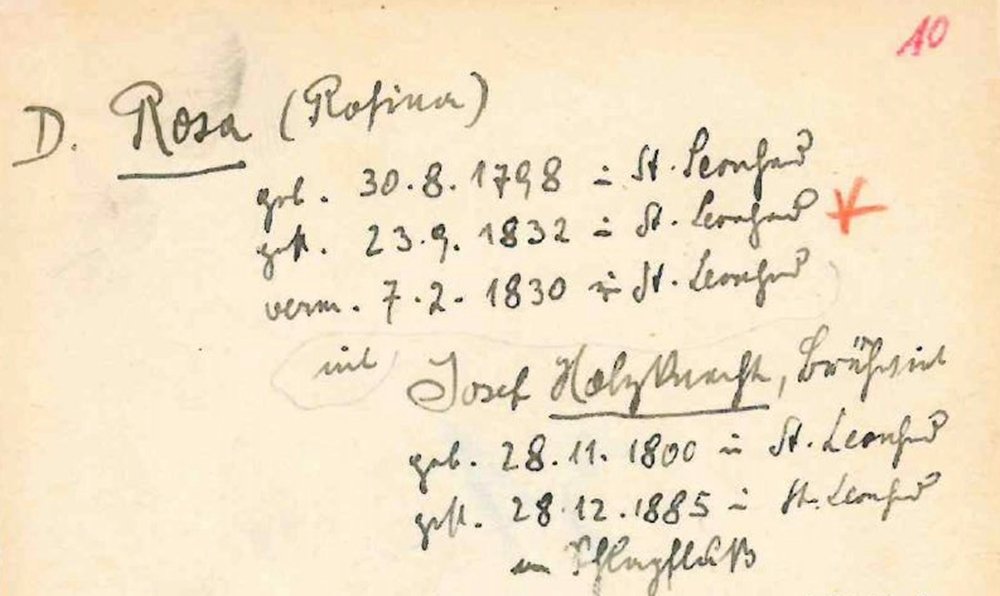 10
D. Rosa (Rosina)
geb. 30.8.1798 in St. Leonhard
gest. 23.9.1832 in St. Leonhard
verm. 7.2.1830 in St. Leonhard
mit Josef Holzknecht,
geb. 28.11.1800 in St. Leonhard
gest. 28.12.1885 in St. Leonhard
an Schlagfluß